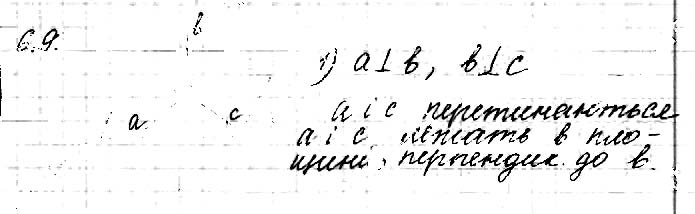 6.9.
в
1) a⊥в, в⊥c
a c
a і c перетинаються
a і c лежать в пло-
щині, перпендик. до в.